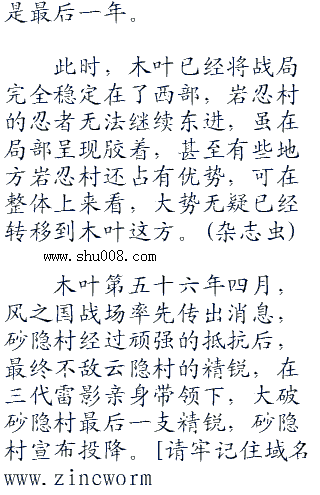 是最后一年。
此时，木叶已经将战局
完全稳定在了西部，岩忍村
的忍者无法继续东进，虽在
局部呈现胶着，甚至有些地
方岩忍村还占有优势，可在
整体上来看，大势无疑已经
转移到木叶这方。(杂志虫)
www.shu008.com
木叶第五十六年四月，
风之国战场率先传出消息，
砂隐村经过顽强的抵抗后，
最终不敌云隐村的精锐，在
三代雷影亲身带领下，大破
砂隐村最后一支精锐，砂隐
村宣布投降。[请牢记住域名
www.zineworm